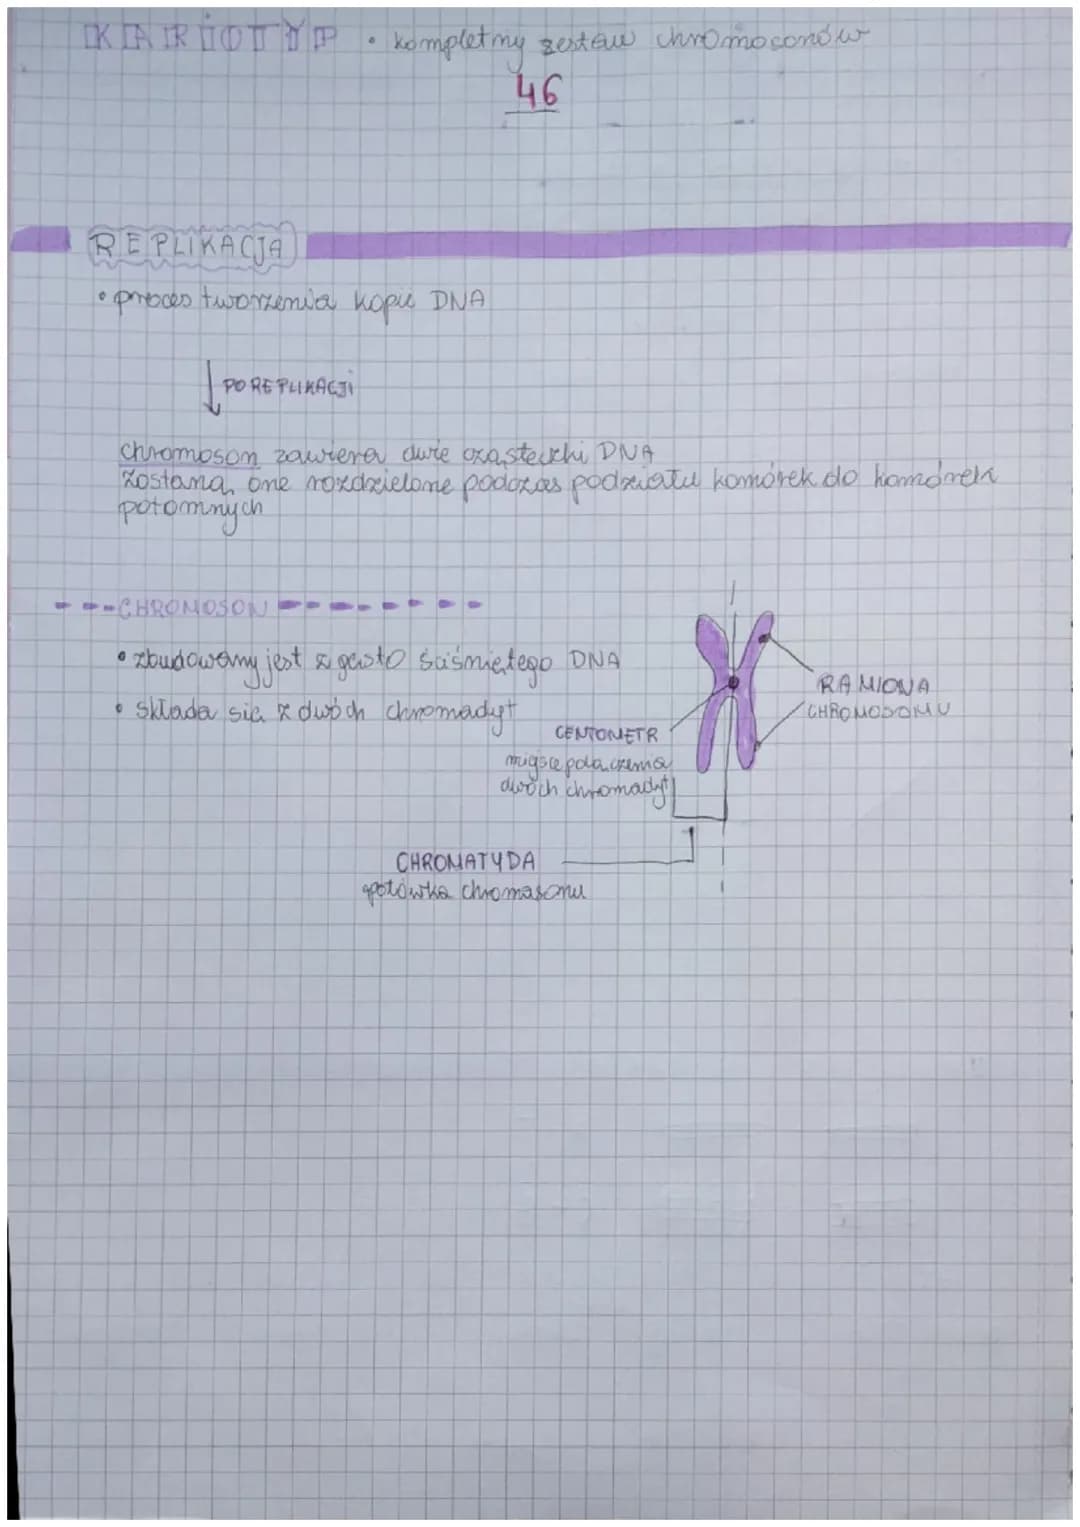 KARIOTYP • kompletny zestaw chromosonów
46
REPLIKACJA
• proces tworzenia kopii DNA
PO REPLIKACJI
chromoson zawiera dwie cząsteczki DNA
Zostaną one rozdzielone podczas podziału komórek do komórek
potomnych
CHROMOSON
• zbudowany jest z gęsto ściśniętego DNA
• składa się z dwóch chromadyt
RAMIONA
CHROMOSOMU
CENTOMETR
miejsce połączenia
dwóch chromadyt
CHROMATYDA
połówka chromasonu